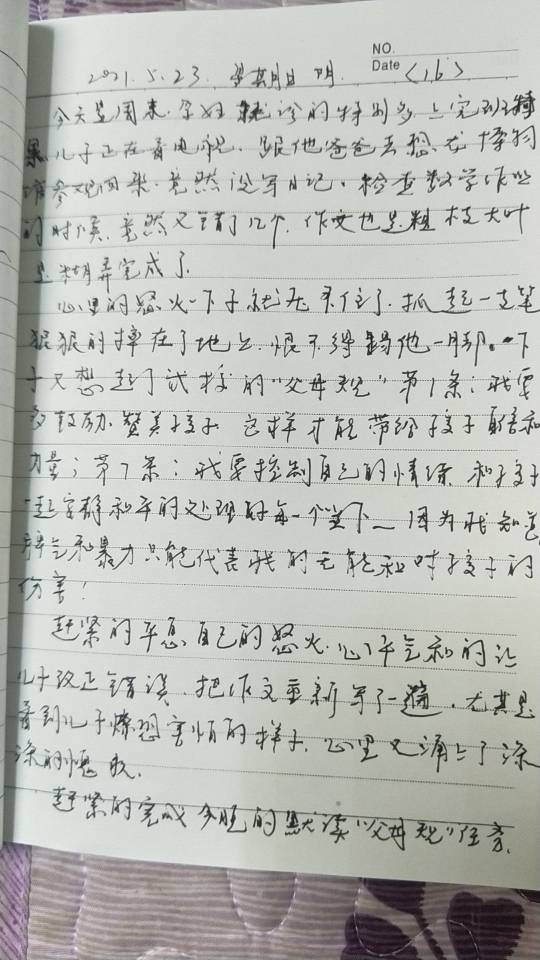 NO.
Date
2021.5.23. 星期日 阴. <16>
今天是周末. 孕妇 就诊的特别多 上完班
儿子正在看电视. 跟他爸爸去恐龙博物
馆参观回来. 竟然没写日记. 检查数学作业
的时候. 竟然又错了12个. 作文也是粗枝大叶
是糊弄完成了.
心里的怒火一下子就压不住了. 抓起一支笔
狠狠的摔在了地上. 恨不得踢他一脚. 一下
子又想起了 的"父母规"第1条: 我要
鼓励. 赞美孩子. 这样才能带给孩子 和
力量; 第7条: 我要控制自己的情绪. 和孩子
一起安静和平的处理好每一个当下_ 因为我知道
脾气和暴力只能代表我的无能和对孩子的
伤害!
赶紧的平息自己的怒火. 心平气和的让
儿子改正错误. 把作文重新写了一遍. 尤其是
看到儿子 害怕的样子. 心里又涌上了深
深的愧疚.
赶紧的完成今晚的默读"父母规"任务.